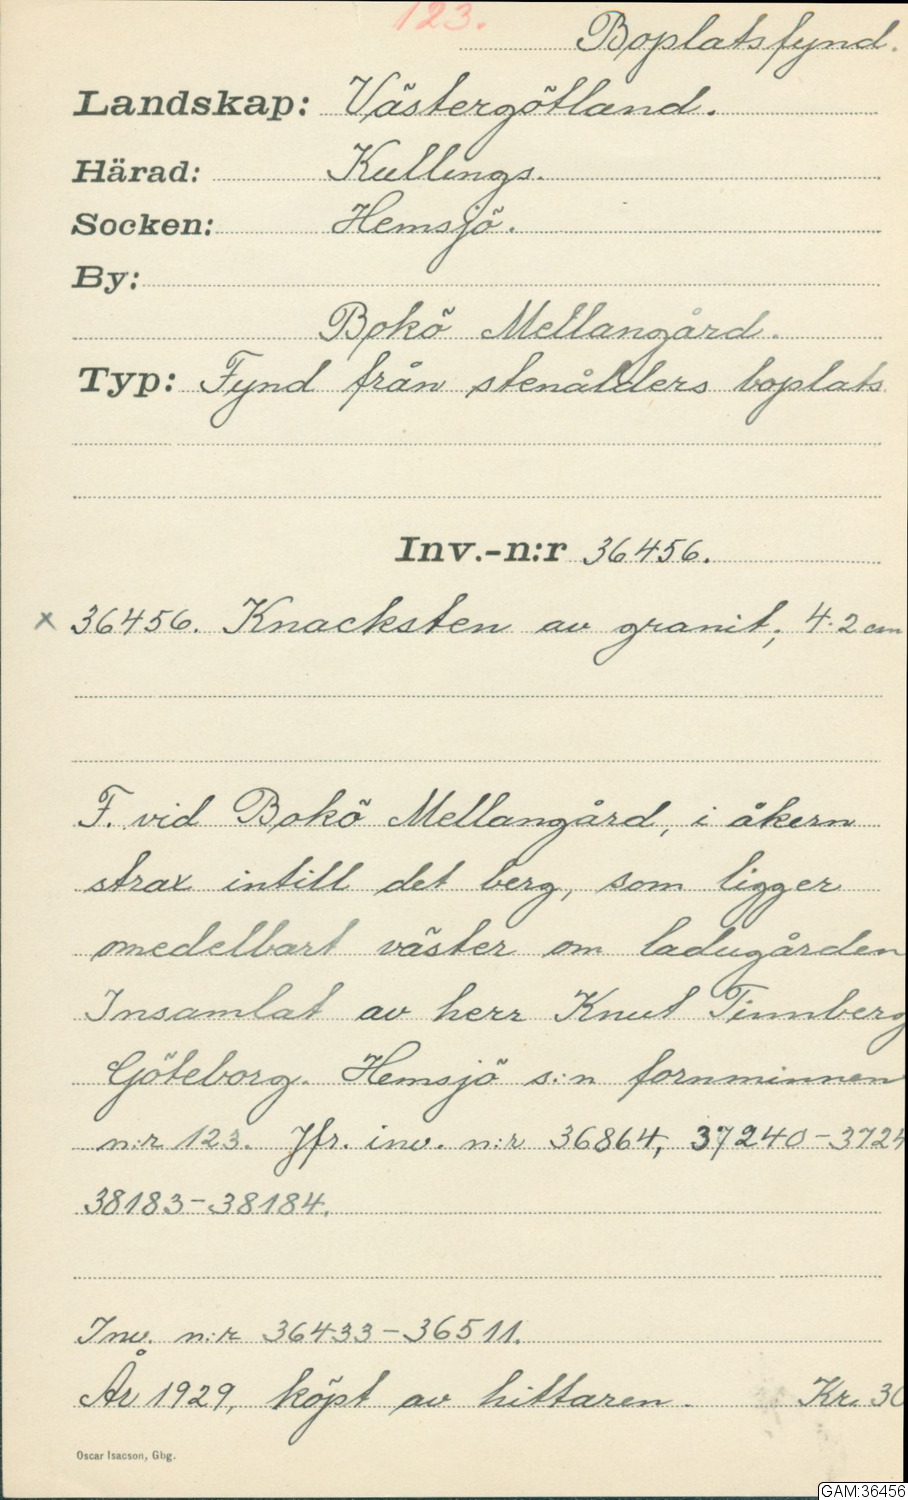 123.
Boplatsfynd.
Landskap: Västergötland.
Härad: Kullings.
Socken: Hemsjö.
By:
Bokö Mellangård.
Typ: Fynd från stenålders boplats
Inv.-n:r 36456.
x 36456. Knacksten av granit; 4.2 cm
F. vid Bokö Mellangård, i åkern
strax intill det berg, som ligger
omedelbart väster om ladugården
Insamlat av herr Knut Tinnberg
Göteborg. Hemsjö s:n fornminnen
n:r 123. Jfr. inv. n:r 36864, 37240-3724
38183-38184.
Inv. n:r 36433-36511.
År 1929, köpt av hittaren. Kr. 30
Oscar Isacson, Gbg.
GAM:36456